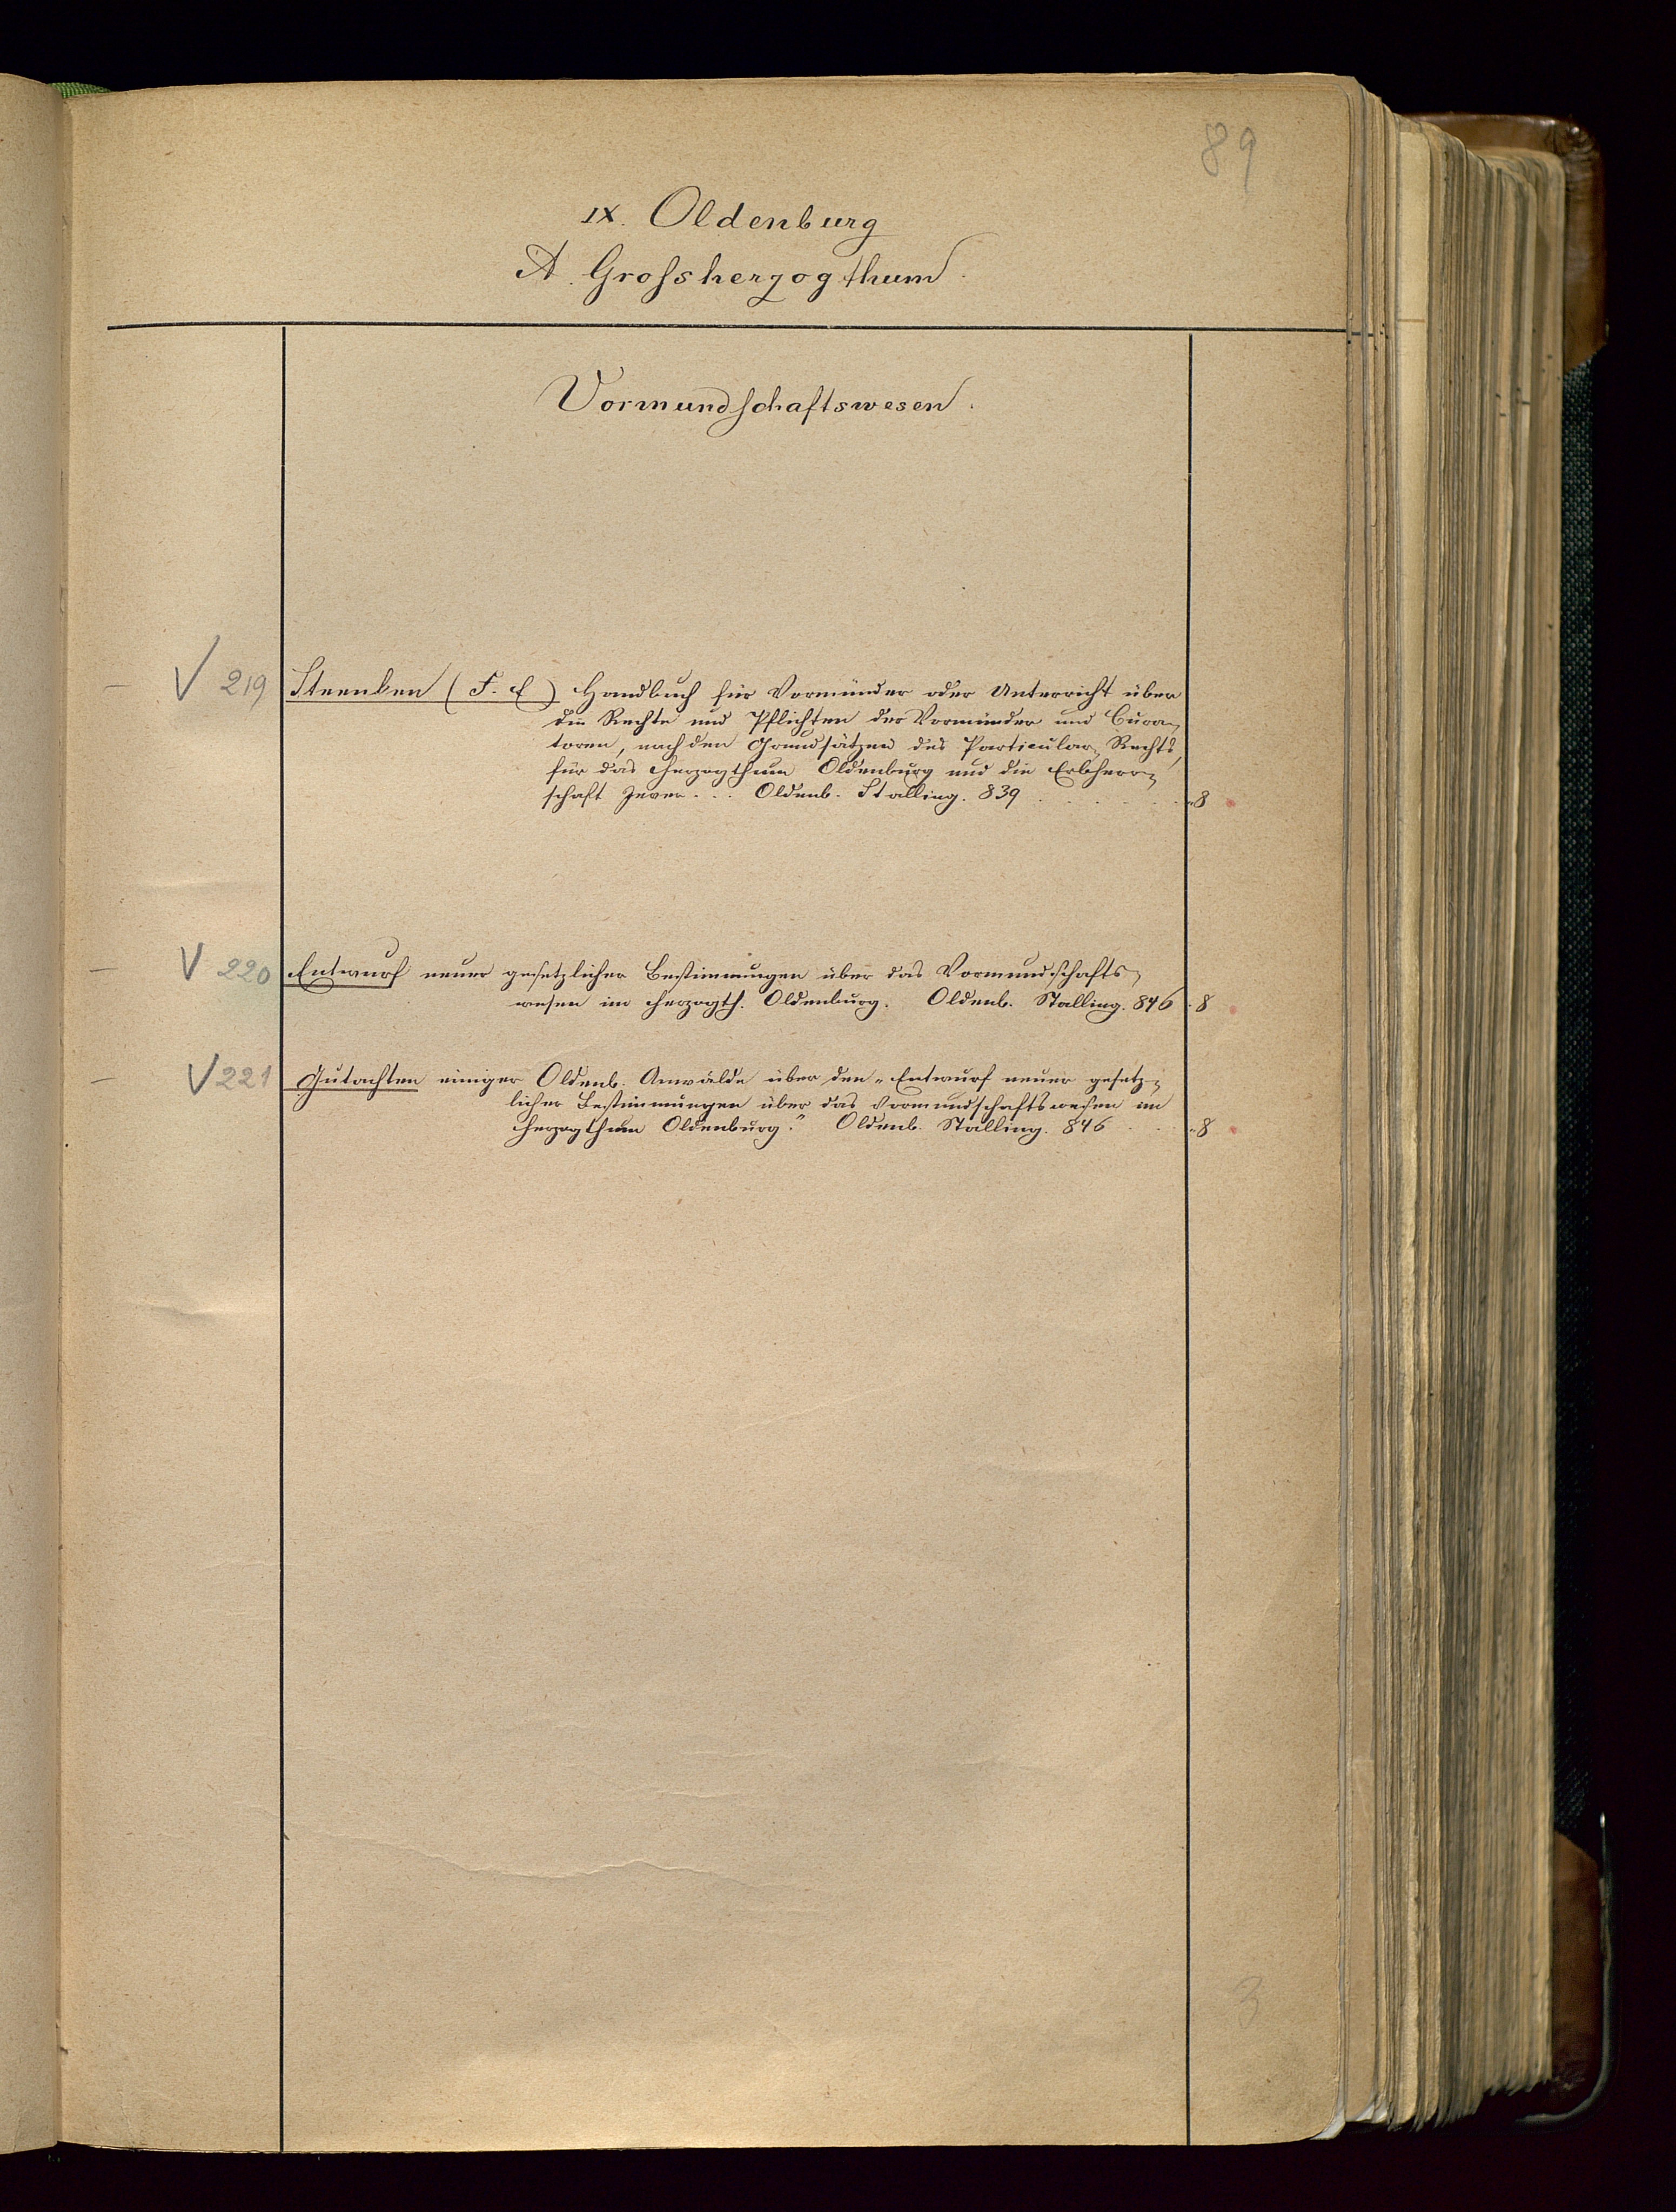 89
IX. Oldenburg
A. Grossherzogthum.
Vormundschaftswesen.
— V 219 (F. E) Handbuch für Vormünder oder Unterricht über
die Rechte und Pflichten der Vormünder und Cura-
toren, nach den Grundsätzen des Particular-Rechts,
für das Herzogthum Oldenburg und die Erbherr-
schaft Jever... Oldenb. Stalling. 839 . . . . . . 8
— V 220 Entwurf neuer gesetzlicher Bestimmungen über das Vormundschafts-
wesen im Herzogth. Oldenburg. Oldenb. Stalling. 846 . 8
— V 221 Gutachten einiger Oldenb. Anwälde über den „Entwurf neuer gesetz-
licher Bestimmungen über das Vormundschaftswesen im
Herzogthum Oldenburg." Oldenb. Stalling. 846 . . . 8
3